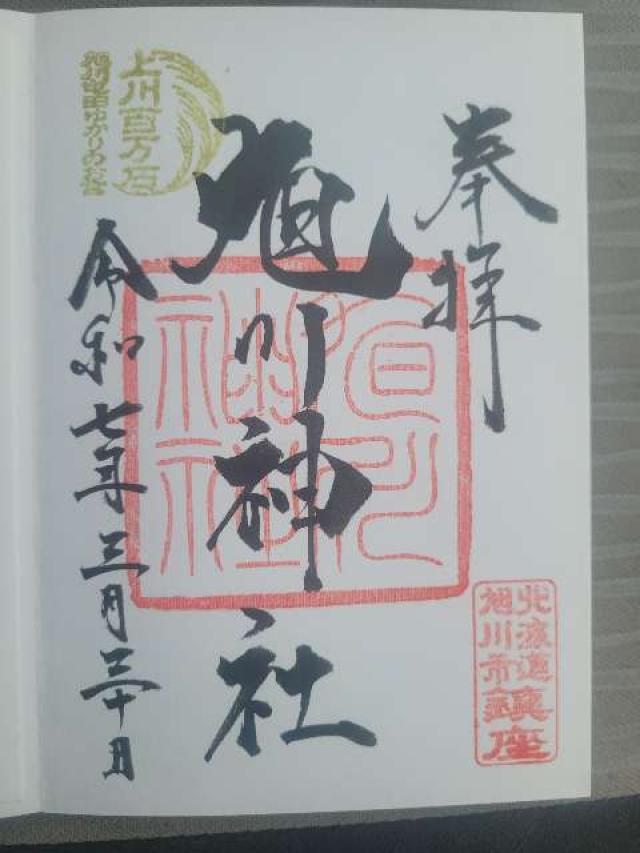 奉拝
旭川神社
令和七年三月三十日
上川百万石
旭川屯田ゆかりのお宮
旭川
神社
北海道
旭川市
鎮座